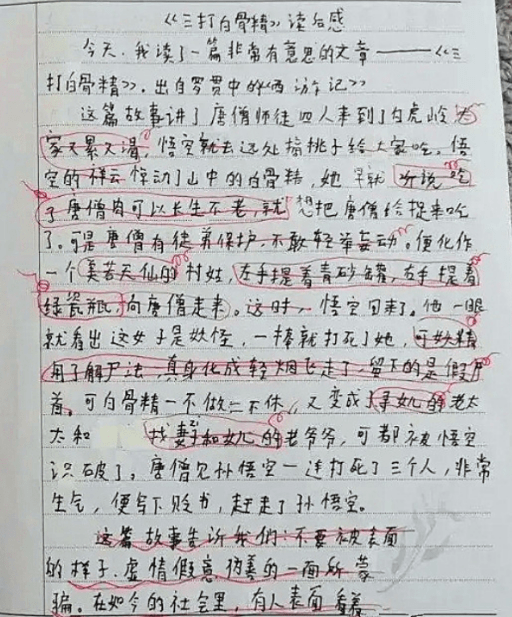 《三打白骨精》读后感
今天，我读了一篇非常有意思的文章——《三
打白骨精》，出自罗贯中的《西游记》
这篇故事讲了唐僧师徒四人来到了白虎岭，大
家又累又渴，悟空就去远处摘桃子给大家吃。悟
空的祥云惊动了山中的白骨精，她早就听说吃
了唐僧肉可以长生不老，就想把唐僧给捉来吃
了。可是唐僧有徒弟保护，不敢轻举妄动。便化作
一个美若天仙的村姑，左手提着青砂罐，右手提着
绿瓷瓶，向唐僧走来。这时，悟空回来了。他一眼
就看出这女子是妖怪，一棒就打死了她，可妖精
用了解尸法，真身化成轻烟飞走了，留下的是假尸
首。可白骨精一不做二不休，又变成了寻女儿的老太
太和找妻子和女儿的老爷爷，可都被悟空
识破了。唐僧见孙悟空一连打死了三个人，非常
生气，便写下贬书，赶走了孙悟空。
这篇故事告诉我们：不要被表面
的样子、虚情假意伪善的一面所蒙
骗。在如今的社会里，有人表面看着